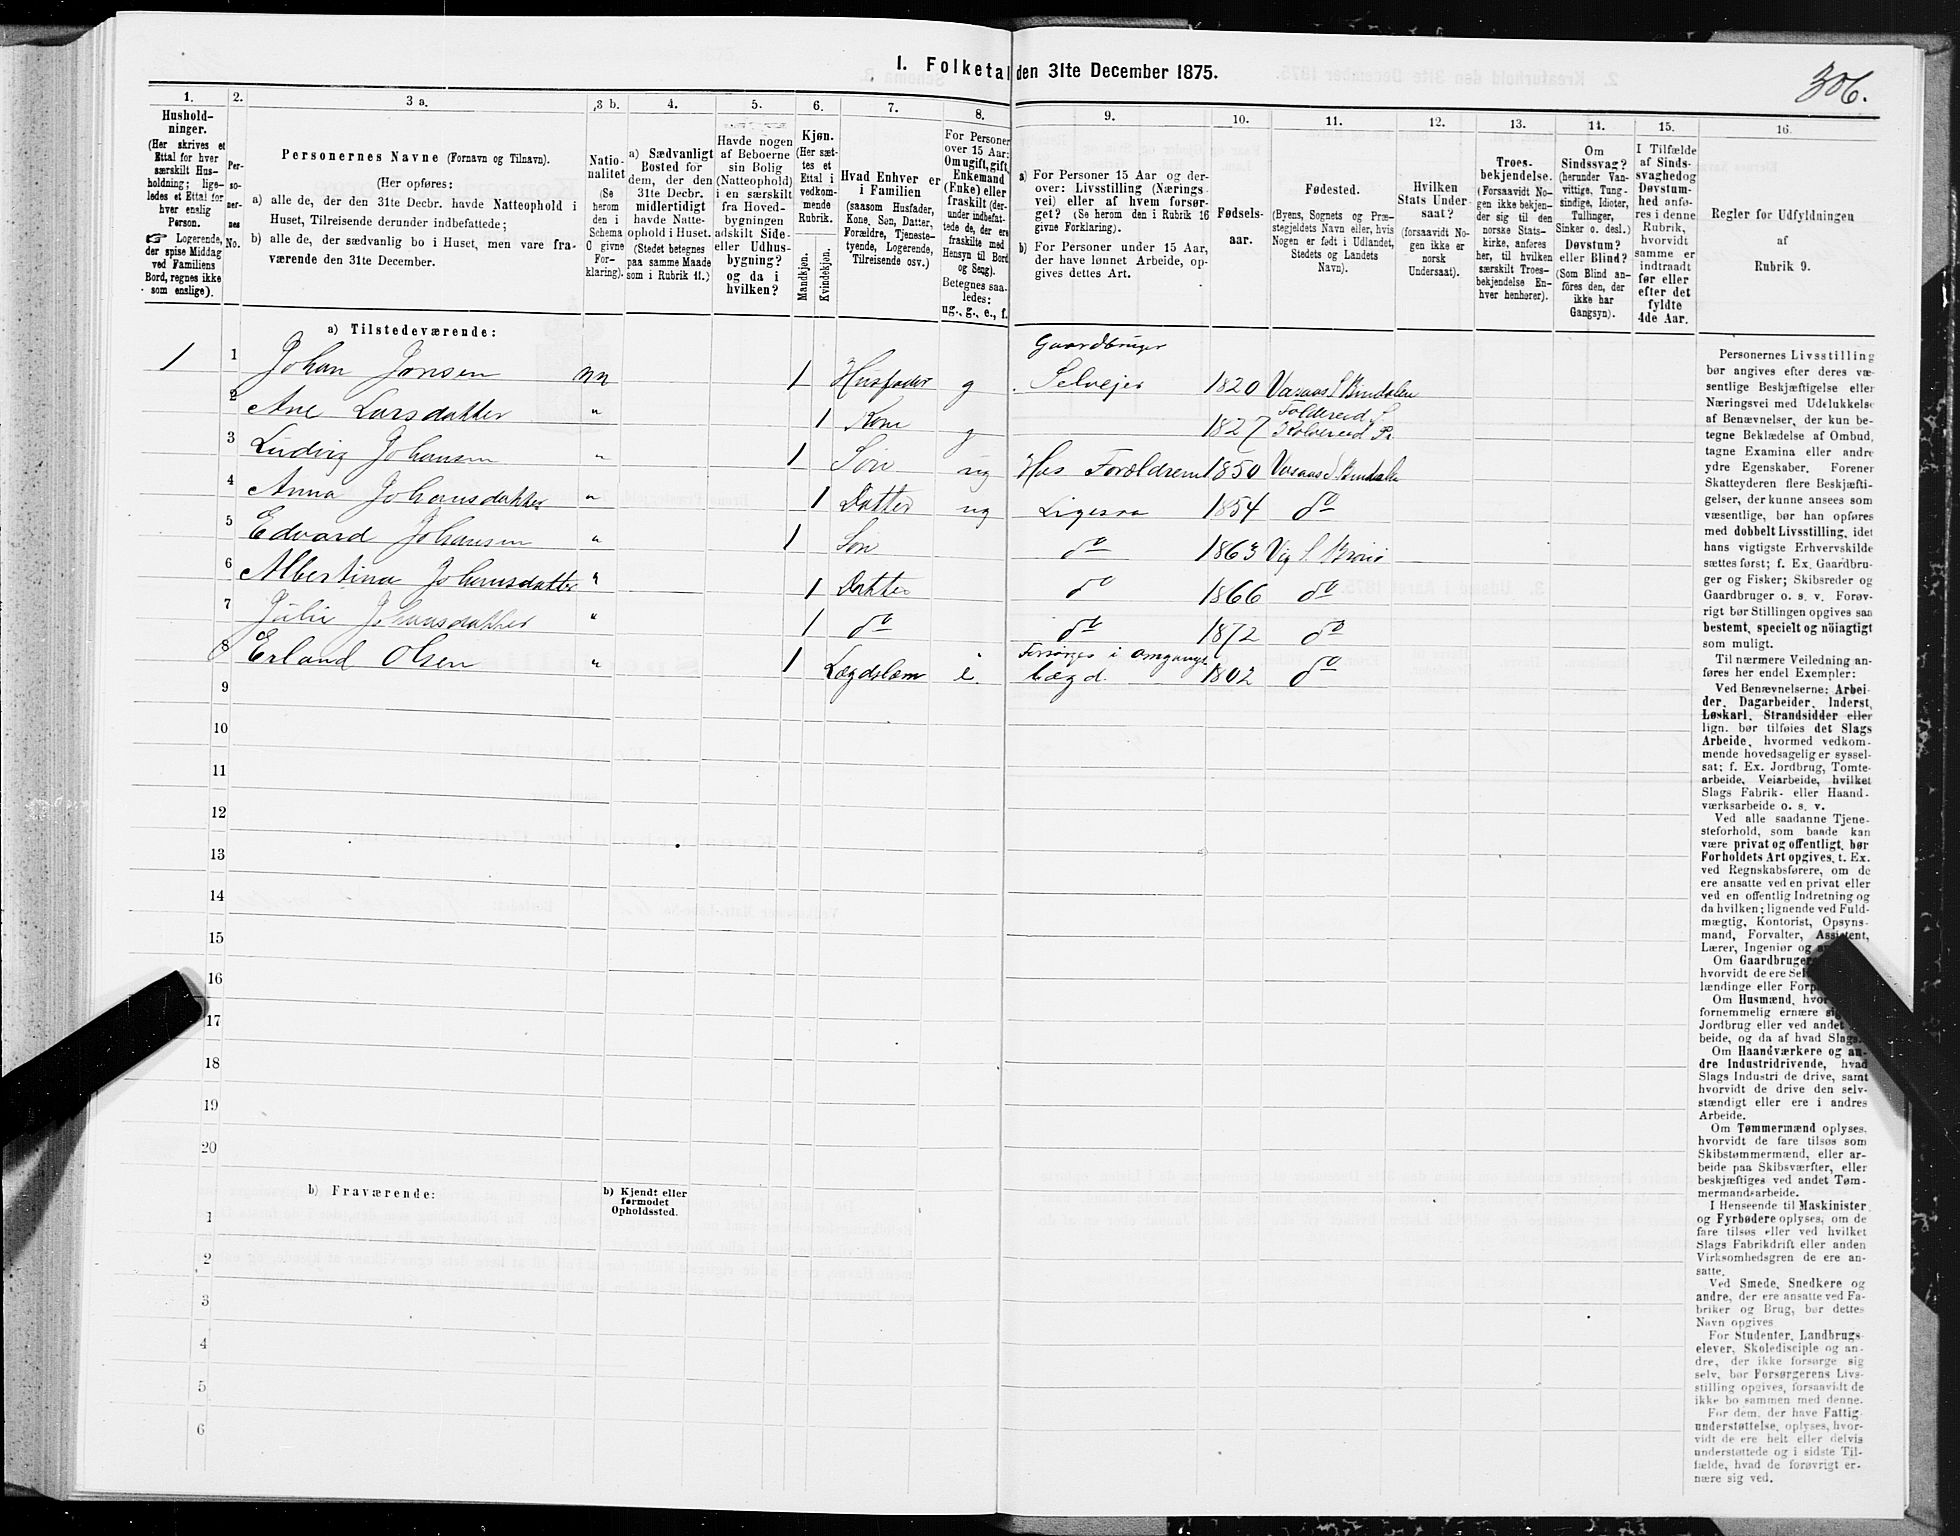 I. Folketal den 31te December 1875.
306.
1.
Hushold-
ninger.
(Her skrives et
Ettal for hver
særskilt Hus-
holdning; lige-
ledes et Ettal for
hver enslig
Person.
☞ Logerende,
der spise Middag
ved Familiens
Bord, regnes ikke
som enslige).
2.
Per-
so-
ner-
nes
No.
3 a.
Personernes Navne (Fornavn og Tilnavn).
(Her opføres:
a) alle de, der den 31te Decbr. havde Natteophold i
Huset, Tilreisende derunder indbefattede;
b) alle de, der sædvanlig bo i Huset, men vare fra-
værende den 31te December.
3 b.
Natio-
nalitet
(Se
herom
den i
Schema
O givne
For-
klaring).
4.
a) Sædvanligt
Bosted for
dem, der den
31te Decbr.
midlertidigt
havde Natte-
ophold i Huset.
(Stedet betegnes
paa samme Maade
som i Rubrik 11.)
5.
Havde nogen
af Beboerne
sin Bolig
(Natteophold)
i en særskilt
fra Hoved-
bygningen
adskilt Side-
eller Udhus-
bygning?
og da i
hvilken?
6.
Kjøn.
(Her sæt-
tes et
Ettal i
vedkom-
mende
Rubrik.
Mandkjøn.
Kvindekjøn.
7.
Hvad Enhver er
i Familien
(saasom Husfader,
Kone, Søn, Datter,
Forældre, Tjeneste-
tyende, Logerende,
Tilreisende osv.)
8.
For Personer
over 15 Aar:
Om ugift, gift,
Enkemand
(Enke) eller
fraskilt (der-
under indbefat-
tede de, der ere
fraskilte med
Hensyn til Bord
og Seng).
Betegnes saa-
ledes:
ug., g., e., f.
9.
a) For Personer 15 Aar og der-
over: Livsstilling (Nærings-
vei) eller af hvem forsør-
get? (Se herom den i Rubrik 16
givne Forklaring).
b) For Personer under 15 Aar,
der have lønnet Arbeide, op-
gives dettes Art.
10.
Fødsels-
aar.
11.
Fødested.
(Byens, Sognets og Præ-
stegjeldets Navn eller, hvis
Nogen er født i Udlandet,
Stedets og Landets
Navn).
12.
Hvilken
Stats Under-
saat?
(forsaavidt No-
gen ikke er
norsk
Undersaat).
13.
Troes-
bekjendelse.
(Forsaavidt No-
gen ikke bekjen-
der sig til den
norske Stats-
kirke, anføres
her, til hvilken
særskilt Troes-
bekjendelse En-
hver henhører).
14.
Om
Sindssvag?
(herunder Van-
vittige, Tung-
sindige, Idioter,
Tullinger,
Sinker o. desl.)
Døvstum?
eller Blind?
(Som Blind an-
føres den, der
ikke har
Gangsyn).
15.
I Tilfælde
af Sinds-
svaghed og
Døvstum-
hed anfø-
res i denne
Rubrik,
hvorvidt
samme er
indtraadt
før eller
efter det
fyldte
4de Aar.
16.
Regler for Udfyldningen
af
Rubrik 9.
a) Tilstedeværende:
Gaardbruger
1 1 Johan Jonsen nn 1 Husfader g Selveier 1820 Vasaas S Bindalen
2 Ane Larsdatter " 1 Kone g 1827 Foldereid S Kolvereid Pr
3 Ludvig Johansen " 1 Søn ug Hos Forældrene 1850 Vasaas S Bindalen
4 Anna Johansdatter " 1 Datter ug Ligesaa 1854 do
5 Edvard Johansen " 1 Søn do 1863 Vig S Brønø
6 Albertina Johansdatter " 1 Datter do 1866 do
7 Julie Johansdatter " 1 do do 1872 do
8 Erland Olsen " 1 Lægdslem e. Forsørges i omgangs lægd. 1802 do
9
10
11
12
13
14
15
16
17
18
19
20
b) Fraværende:
b) Kjendt eller
formodet
Opholdssted.
1
2
3
4
5
6
Personernes Livsstilling
bør angives efter deres væ-
sentlige Beskjæftigelse eller
Næringsvei med Udelukkelse
af Benævnelser, der kun be-
tegne Beklædelse af Ombud,
tagne Examina eller andre
ydre Egenskaber. Forener
Skatteyderen flere Beskjæfti-
gelser, der kunne ansees som
væsentlige, bør han opføres
med dobbelt Livsstilling, idet
hans vigtigste Erhvervskilde
sættes først; f. Ex. Gaardbru-
ger og Fisker; Skibsreder og
Gaardbruger o. s. v. Forøv-
rigt bør Stillingen opgives saa
bestemt, specielt og nöiagtigt
som muligt.
Til nærmere Veiledning an-
føres her endel Exempler:
Ved Benævnelserne: Arbei-
der, Dagarbeider, Inderst,
Løskarl, Strandsidder eller
lign. bør tilføies det Slags
Arbeide, hvormed vedkom-
mende hovedsagelig er syssel-
sat; f. Ex. Jordbrug, Tomte-
arbeide, Veiarbeide, hvilket
Slags Fabrik- eller Haand-
værksarbeide o. s. v.
Ved alle saadanne Tjene-
steforhold, som baade kan
være privat og offentligt, bør
Forholdets Art opgives, t. Ex.
ved Regnskabsførere, om de
ere ansatte ved en privat eller
ved en offentlig Indretning og
da hvilken; lignende ved Fuld-
mægtig, Kontorist, Opsyns-
mand, Forvalter, Assistent,
Lærer, Ingeniør og
Om Gaardbrugere
hvorvidt de ere Sel
lændinge eller Forp
Om Husmænd, hvor
fornemmelig ernære sig
Jordbrug eller ved andet
beide, og da af hvad Slags.
Om Haandværkere og an-
dre Industridrivende, hvad
Slags Industri de drive, samt
hvorvidt de drive den selv-
stændigt eller ere i andres
Arbeide.
Om Tømmermænd oplyses,
hvorvidt de fare tilsøs som
Skibstømmermænd, eller ar-
beide paa Skibsværfter, eller
beskjæftiges ved andet Tøm-
mermandsarbeide.
I Henseende til Maskinister
og Fyrbødere oplyses, om de
fare tilsøs eller ved hvilket
Slags Fabrikdrift eller anden
Virksomhedsgren de ere an-
satte.
Ved Smede, Snedkere og
andre, der ere ansatte ved Fa-
briker og Brug, bør dettes
Navn opgives
For Studenter, Landbrugs-
elever, Skoledisciple og an-
dre, der ikke forsørge sig
selv, bør Forsørgerens Livs-
stilling opgives, forsaavidt de
ikke bo sammen med denne.
For dem, der have Fattig-
understøttelse, oplyses, hvor-
vidt de ere helt eller delvis
understøttede og i sidste Til-
fælde, hvad de forøvrigt er-
nære sig ved.